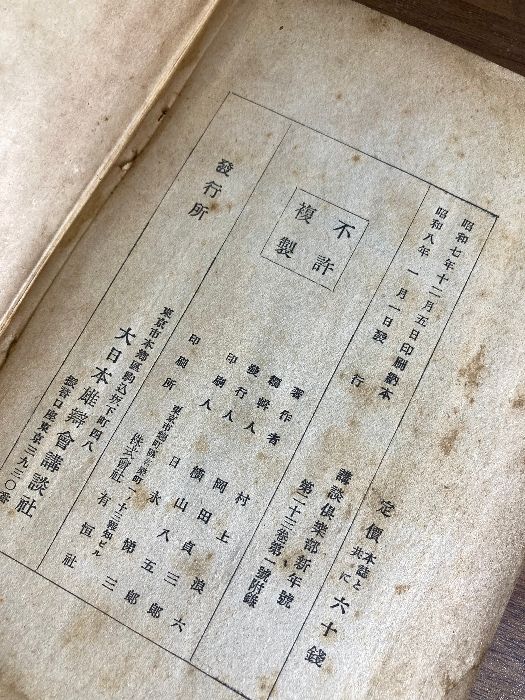 昭和七年十二月五日印刷納本
昭和八年一月一日發行
定價 本誌と共に 六十錢
講談倶樂部新年號
第二十三卷第一號附錄
不許複製
著作者 村上浪六
編輯人 岡田貞三郎
發行人 橫山八五郎
印刷人 日永節三
印刷所 東京市麴町區有樂町一ノ十三報知ビル
株式會社 有恒社
發行所
東京市本鄕區駒込坂下町四八
大日本雄辯會講談社
振替口座東京三九三〇番